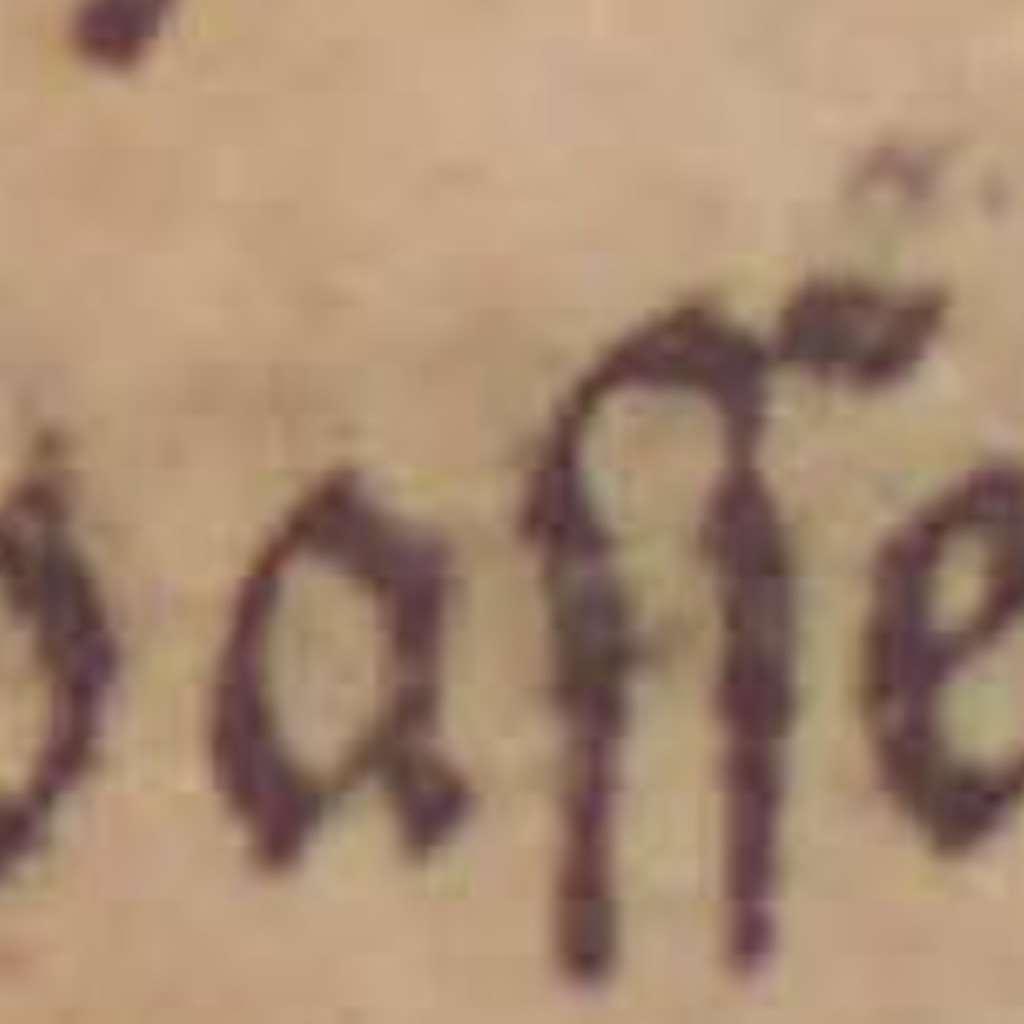 oaſſe